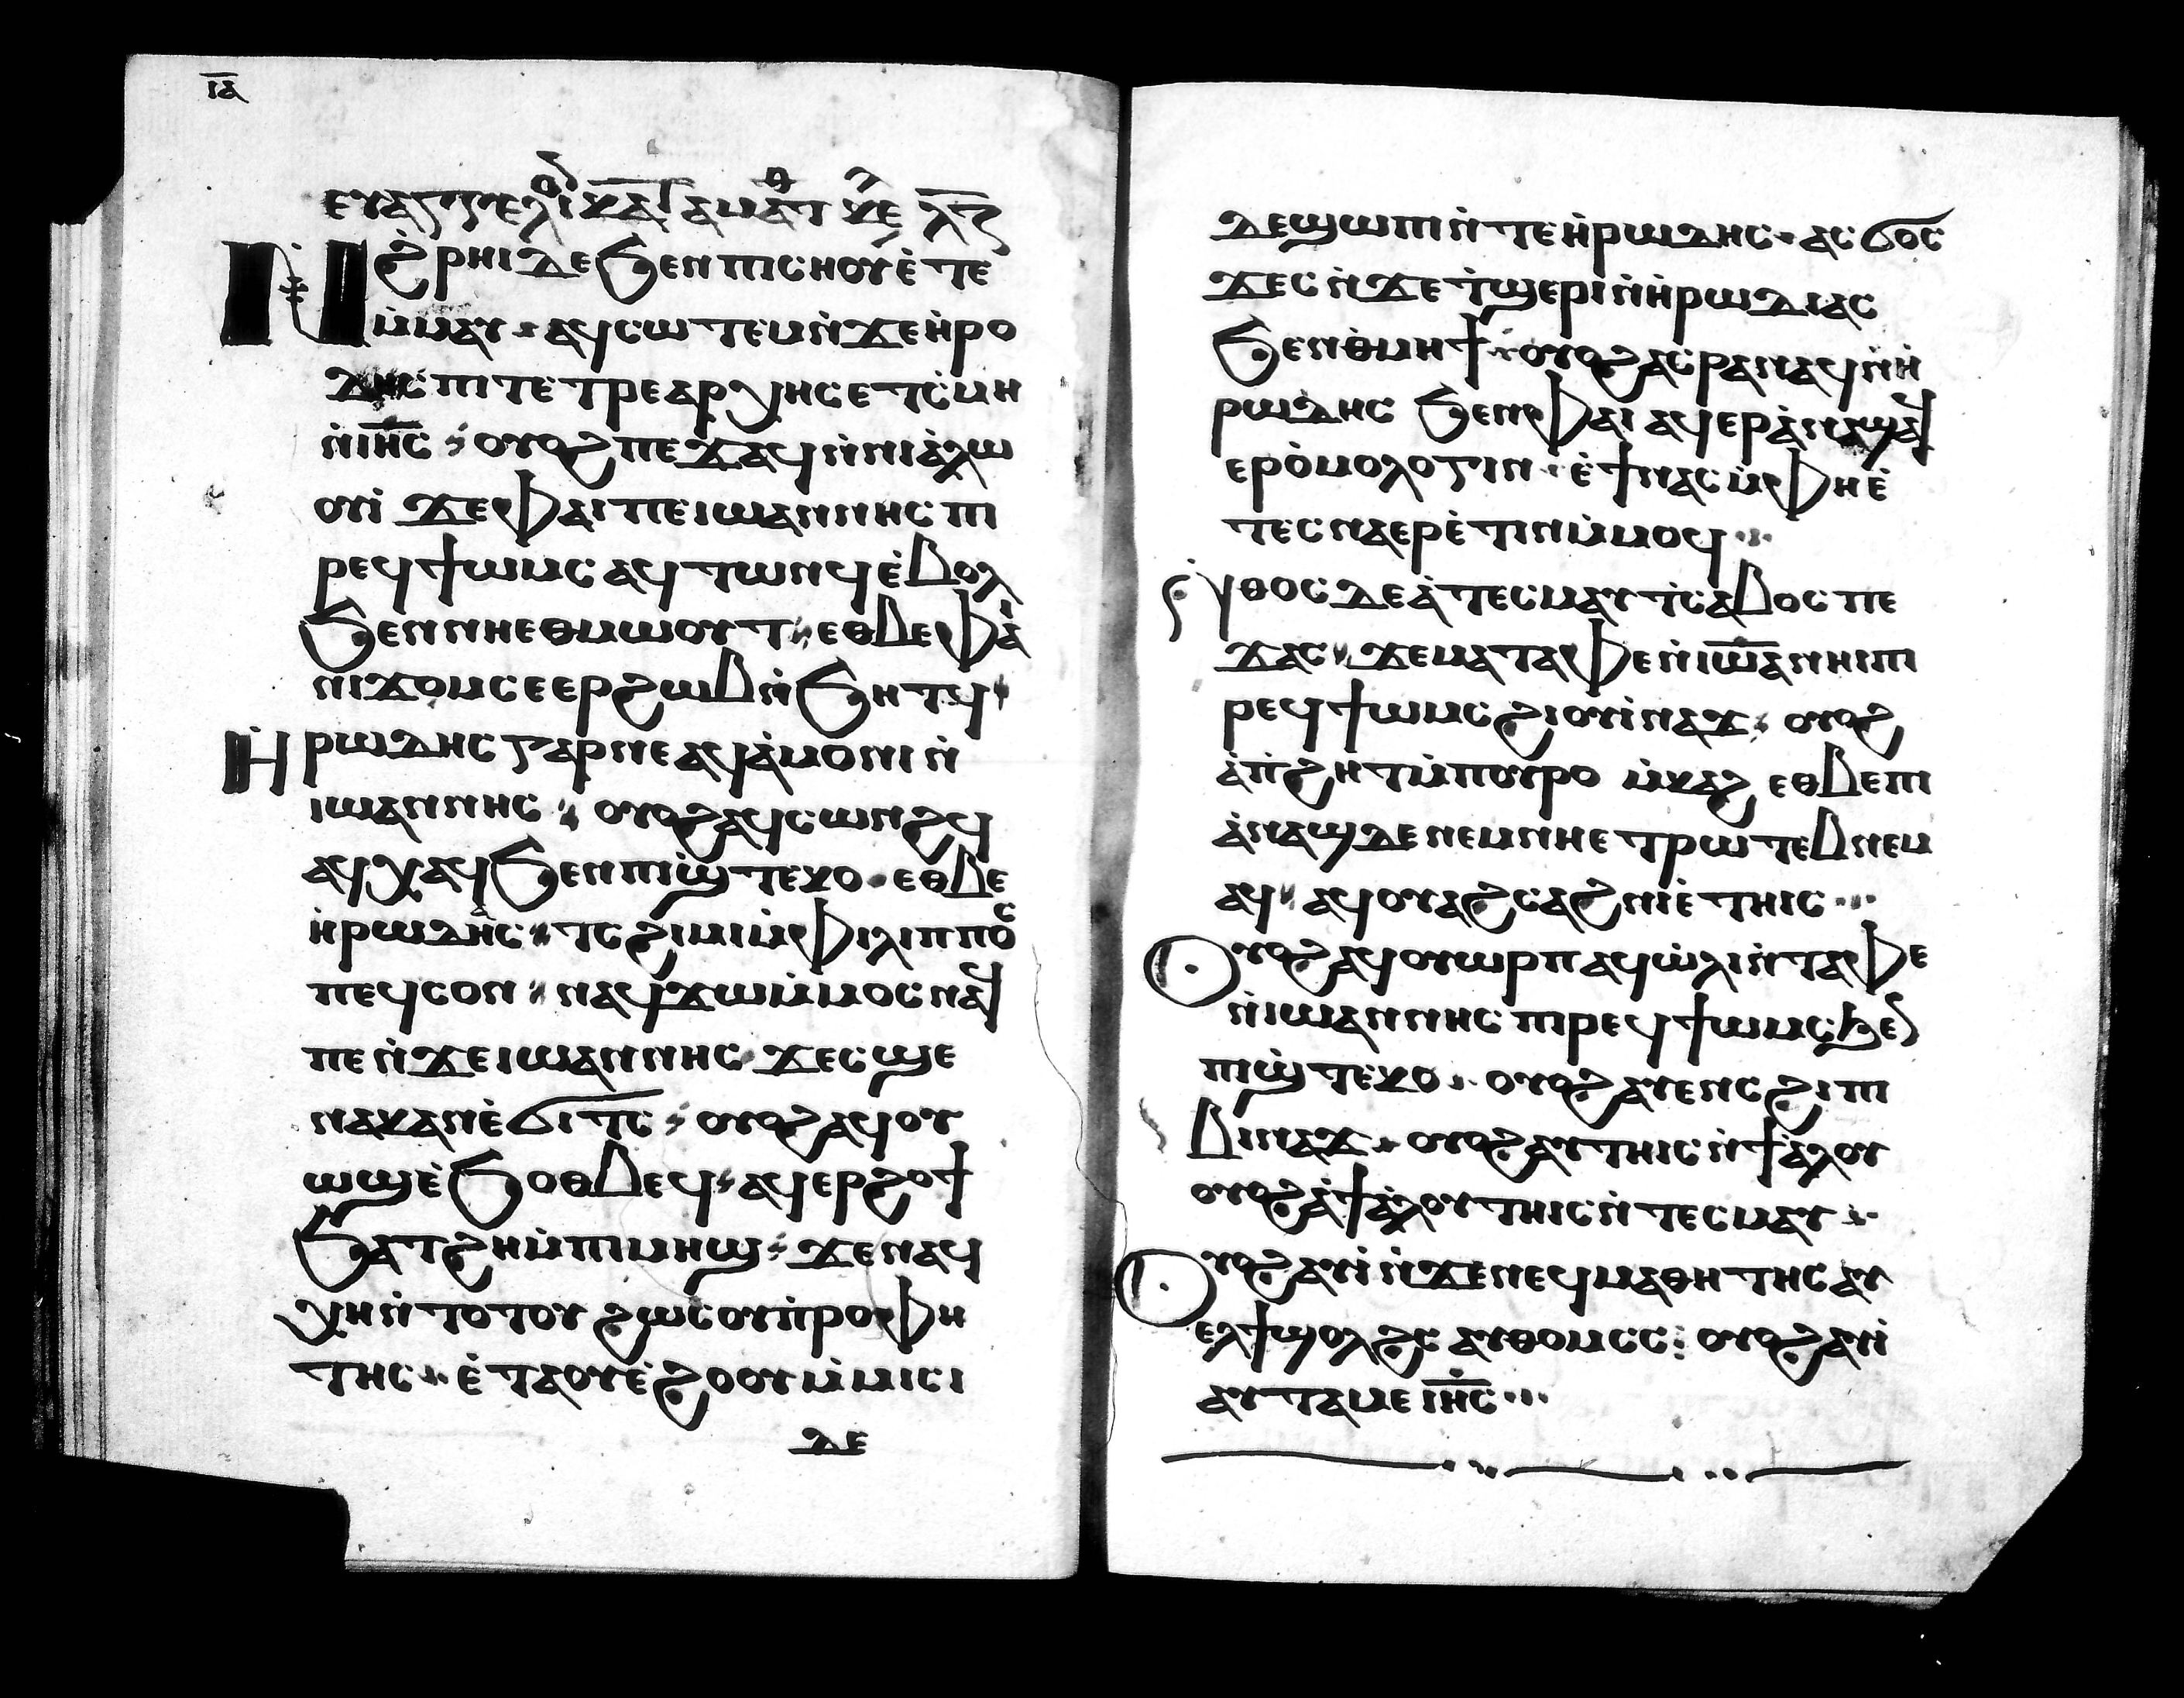 ⲓⲁ
ⲉⲩⲁⲅⲅⲉⲗⲓⲟⲛ ⲕⲁⲧⲁ ⲙⲁⲧⲑ ⲕⲉ ⲗⲍ
Ⲛϩ̀ⲣⲏⲓ ⲇⲉ ϧⲉⲛ ⲡⲓⲥⲏⲟⲩ ⲉ̀ⲧⲉ
ⲙ̀ⲙⲁⲩ ⲁϥⲥⲱⲧⲉⲙ ⲛ̀ϫⲉ ⲏ̀ⲣⲟ
ⲇⲏⲥ ⲡⲓⲧⲉⲧⲣⲉⲁⲣⲭⲏⲥ ⲉⲧⲥ̀ⲙⲏ
ⲛ̀ⲓⲏ̅ⲥ ⲟⲩⲟϩ ⲡⲉϫⲁϥ ⲛ̀ⲛⲓⲁ̀ⲗⲱ
ⲟⲩⲓ̀ ϫⲉ ⲫⲁⲓ ⲡⲉ ⲓⲱⲁⲛⲛⲏⲥ ⲡⲓ
ⲣⲉϥϯⲱⲙⲥ ⲁϥⲧⲱⲛϥ ⲉ̀ⲃⲟⲗ
ϧⲉⲛ ⲛⲏⲉⲑⲙⲱⲟⲩⲧ ⲉⲑⲃⲉ ⲫⲁⲓ
ⲛⲓϫⲟⲙ ⲥⲉⲉⲣϩⲱⲃ ⲛ̀ϧⲏⲧϥ
Ⲏ̀ⲣⲱⲇⲏⲥ ⲅⲁⲣ ⲛⲉ ⲁϥⲁ̀ⲙⲟⲛⲓ ⲛ̀
ⲓⲱⲁⲛⲛⲏⲥ ⲟⲩⲟϩ ⲁϥⲥⲱⲛϩϥ
ⲁϥⲭⲁϥ ϧⲉⲛ ⲡⲓϣ̀ⲧⲉⲕⲟ ⲉⲑⲃⲉ
ⲏ̀ⲣⲱⲇⲓⲁⲥ ⲧⲥ̀ϩⲓⲙⲓ ⲙ̀ⲫⲓⲗⲓⲡⲡⲟⲥ
ⲡⲉϥⲥⲟⲛ ⲛⲁϥϫⲱ ⲙ̀ⲙⲟⲥ ⲛⲁϥ
ⲡⲉ ⲛ̀ϫⲉ ⲓⲱⲁⲛⲛⲏⲥ ϫⲉ ⲥϣⲉ
ⲛⲁⲕ ⲁⲛ ⲉ̀ϭⲓⲧⲥ ⲟⲩⲟϩ ⲁϥⲟⲩ
ⲱϣ ⲉ̀ϧⲟⲑⲃⲉϥ ⲁϥⲉⲣϩⲟϯ
ϧⲁⲧϩⲏ ⲙ̀ⲡⲓⲙⲏϣ ϫⲉ ⲛⲁϥ
ⲭⲏ ⲛ̀ⲧⲟⲧⲟⲩ ϩⲱⲥ ⲟⲩⲡ̀ⲣⲟⲫⲏ
ⲧⲏⲥ ⲉ̀ⲧⲁⲟⲩⲉ̀ϩⲟⲟⲩ ⲙ̀ⲙⲓⲥⲓ
ⲇⲉ
ⲇⲉ ϣⲱⲡⲓ ⲛ̀ⲧⲉ ⲏ̀ⲣⲱⲇⲏⲥ ⲁⲥϭⲟⲥ
ϫⲉⲥ ⲛ̀ϫⲉ ⲧ̀ϣⲉⲣⲓ ⲛ̀ⲏ̀ⲣⲱⲇⲓⲁⲥ
ϧⲉⲛ ⲑ̀ⲙⲏϯ ⲟⲩⲟϩ ⲁⲥⲣⲁⲛⲁϥ ⲛ̀ⲏ̀
ⲣⲱⲇⲏⲥ ϧⲉⲛ ⲫⲁⲓ ⲁϥⲉⲣⲁ̀ⲛⲁϣ ⲁϥ
ⲉⲣⲟ̀ⲙⲟⲗⲟⲅⲓⲛ ⲉ̀ϯ ⲛⲁⲥ ⲙ̀ⲫⲏⲉ̀
ⲧⲉⲥⲛⲁⲉⲣⲉ̀ⲧⲓⲛ ⲙ̀ⲙⲟϥ
ⲛ̀ⲑⲟⲥ ⲇⲉ ⲁ̀ ⲧⲉⲥⲙⲁⲩ ⲧ̀ⲥⲁⲃⲟⲥ ⲡⲉ
ϫⲁⲥ ϫⲉ ⲙⲁ ⲧⲁⲫⲉ ⲛ̀ⲓⲱⲁⲛⲏⲓ ⲡⲓ
ⲣⲉϥϯⲱⲙⲥ ϩⲓ ⲟⲩⲓ̀ⲛⲁϫ ⲟⲩⲟϩ
ⲁ̀ ⲡ̀ϩⲏⲧ ⲙ̀ⲡⲟⲩⲣⲟ ⲙ̀ⲕⲁϩ ⲉⲑⲃⲉ ⲡⲓ
ⲁ̀ⲛⲁϣ ⲇⲉ ⲛⲉⲙ ⲛⲏⲉⲧⲣⲱⲧⲉⲃ ⲛⲉⲙ
ⲁϥ ⲁϥⲟⲩⲁϩⲥⲁϩⲛⲓ ⲉ̀ⲧⲏⲓⲥ
Ⲟⲩⲟϩ ⲁϥⲟⲩⲱⲣⲡ ⲁϥⲱ̀ⲗⲓ ⲛ̀ⲧⲁⲫⲉ
ⲛ̀ⲓⲱⲁⲛⲛⲏⲥ ⲡⲓⲣⲉϥϯⲱⲙⲥ ϧⲉⲛ
ⲡⲓϣ̀ⲧⲉⲕⲟ ⲟⲩⲟϩ ⲁⲩⲉⲛⲥ ϩⲓ ⲡⲓ
ⲃⲓⲛⲁϫ ⲟⲩⲟϩ ⲁⲩⲧⲏⲓⲥ ⲛ̀ϯⲁ̀ⲗⲟⲩ
ⲟⲩⲟϩ ⲁ̀ ϯⲁ̀ⲗⲟⲩ ⲧⲏⲓⲥ ⲛ̀ⲧⲉⲥⲙⲁⲩ
Ⲟⲩⲟϩ ⲁⲩⲓ̀ ⲛ̀ϫⲉ ⲛⲉϥⲙⲁⲑⲏⲧⲏⲥ ⲁⲩ
ⲉⲗ ϯϣⲟⲗϩⲥ ⲁⲩⲑⲟⲙⲥⲥ ⲟⲩⲟϩ ⲁⲩⲓ̀
ⲁⲩⲧⲁⲙⲉ ⲓⲏ̅ⲥ